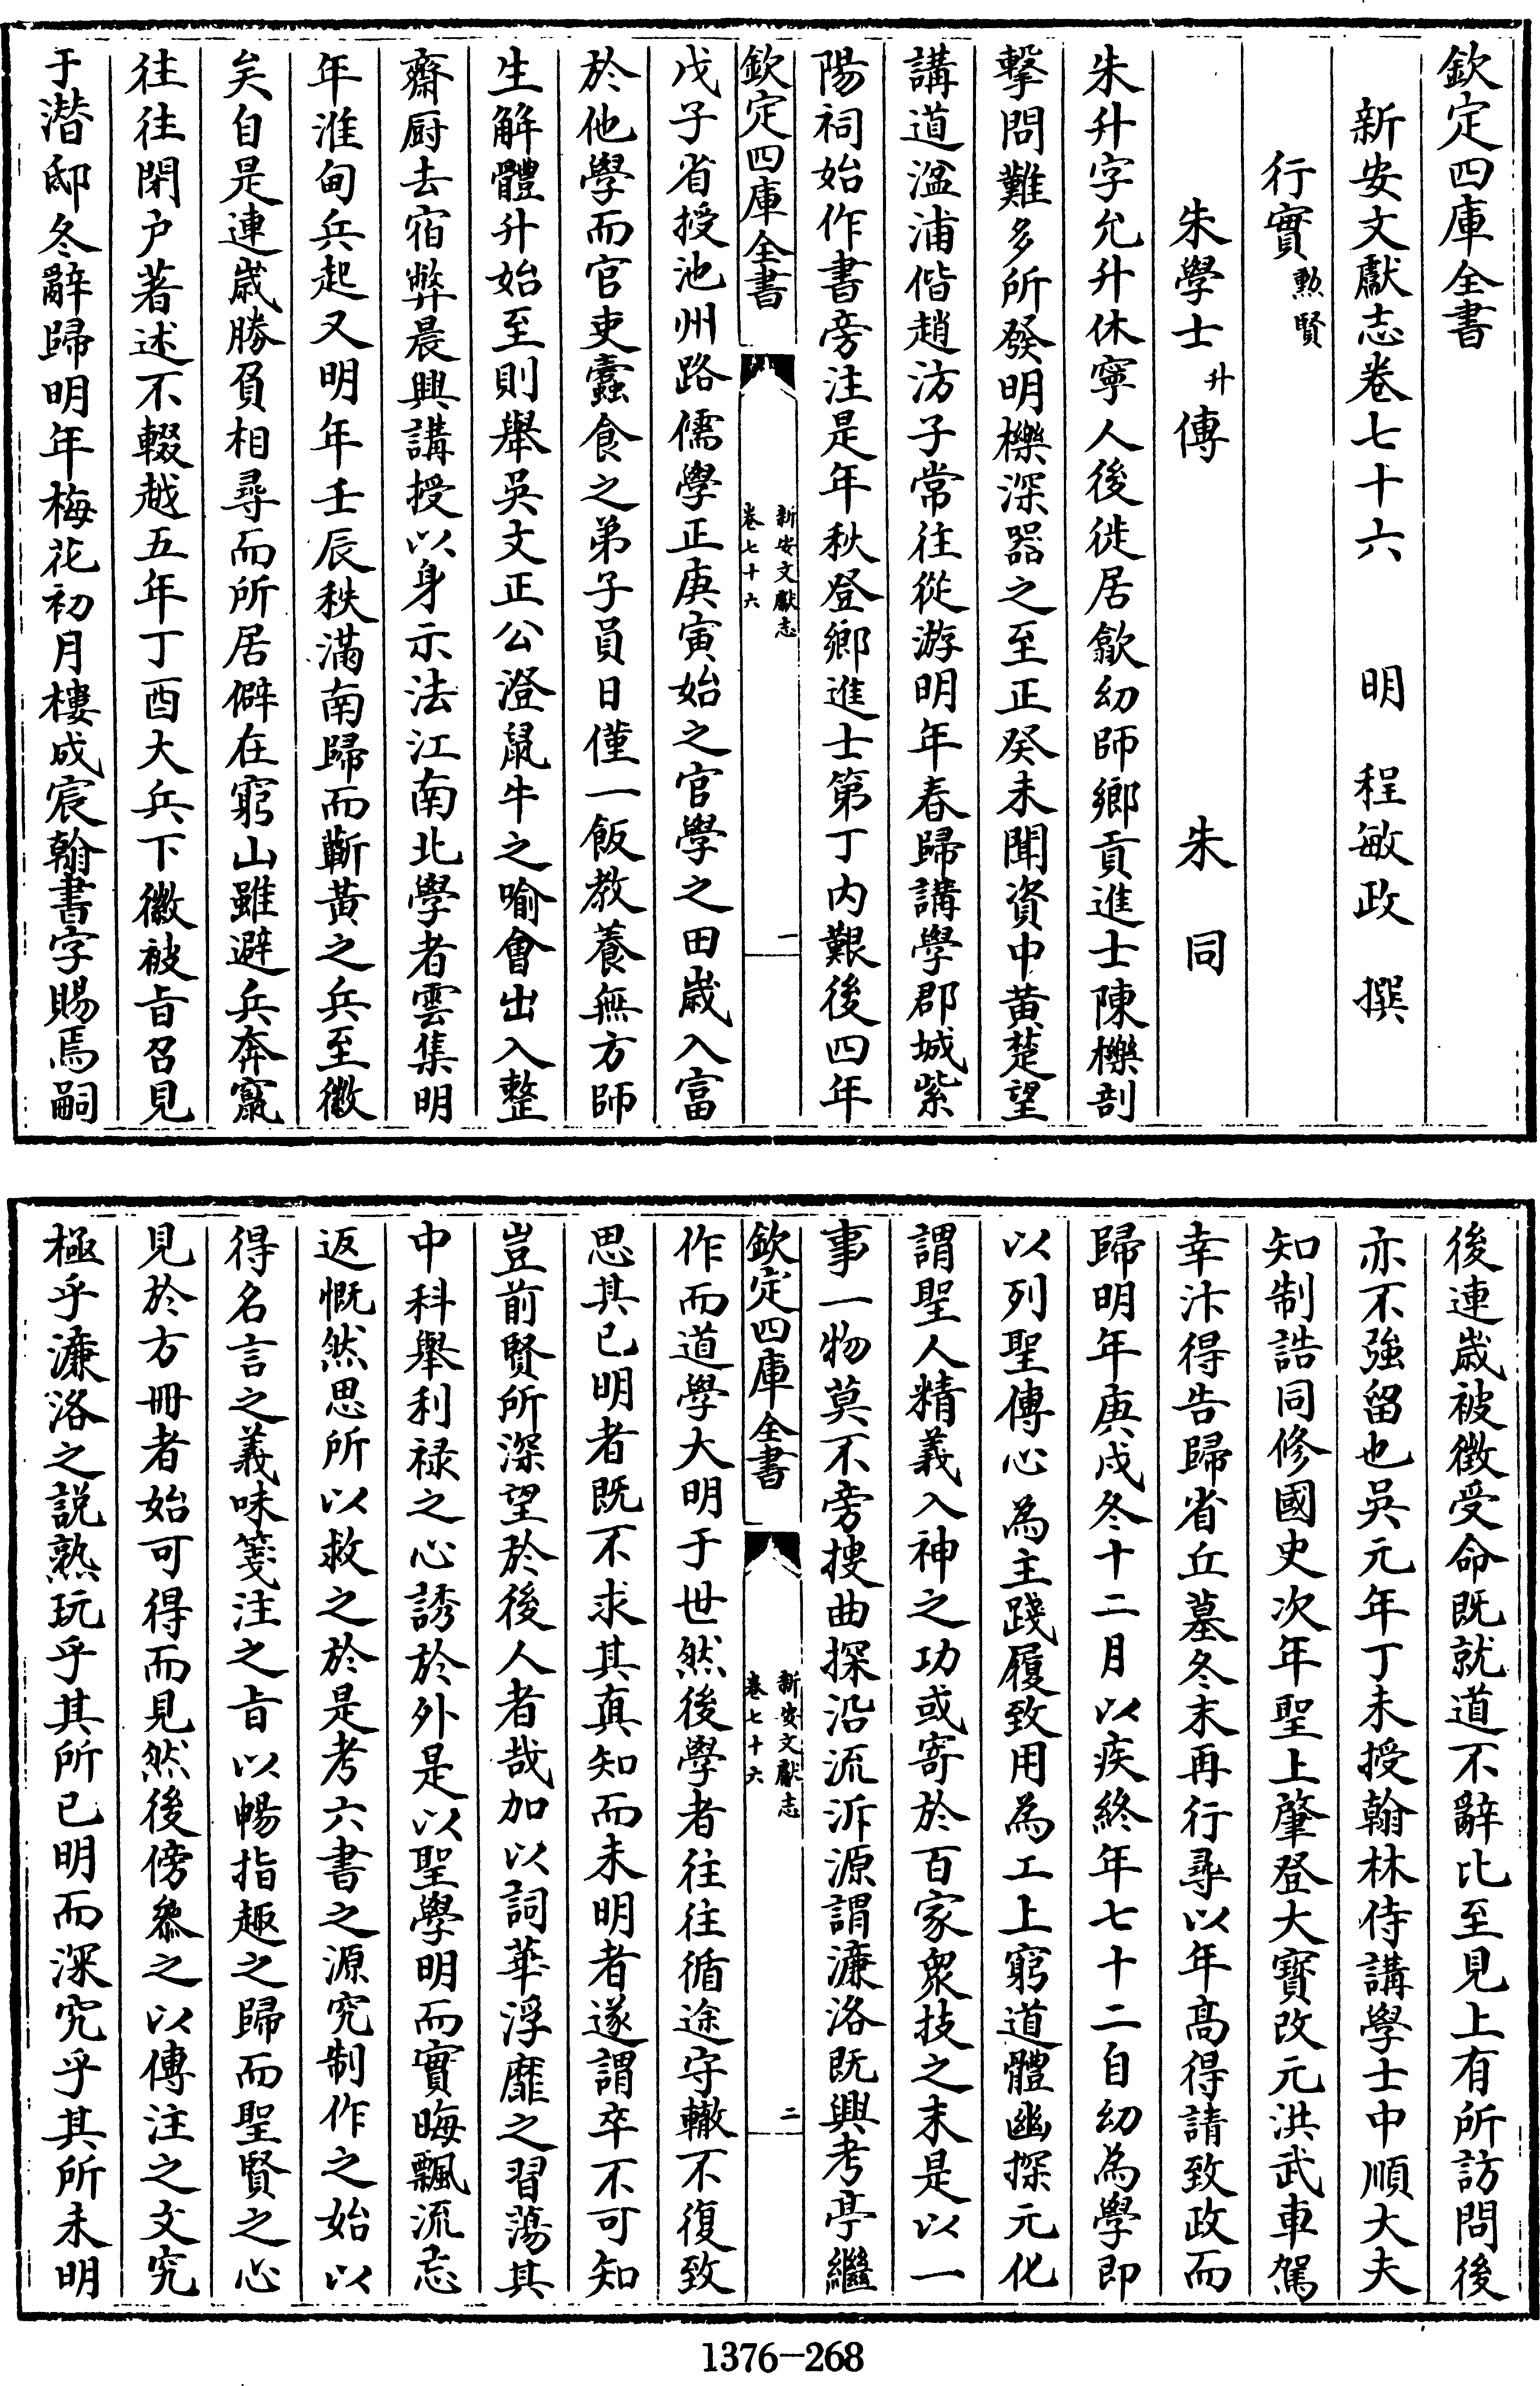 欽定四庫全書
新安文獻志卷七十六　明　程敏政　撰
行實勲賢
朱學士升傳　朱同
朱升字允升休寧人後徙居歙幼師鄉貢進士陳櫟剖
擊問難多所發明櫟深器之至正癸未聞資中黄楚望
講道湓浦偕趙汸子常往從游明年春歸講學郡城紫
陽祠始作書旁注是年秋登鄉進士第丁内艱後四年
欽定四庫全書
新安文獻志
卷七十六
一
戊子省授池州路儒學正庚寅始之官學之田歲入富
於他學而官吏蠹食之弟子員日僅一飯教養無方師
生解體升始至則舉吳文正公澄鼠牛之喻會出入整
齋厨去宿弊晨興講授以身示法江南北學者雲集明
年淮甸兵起又明年壬辰秩滿南歸而蘄黄之兵至徽
矣自是連歲勝負相尋而所居僻在窮山雖避兵奔竄
往往閉户著述不輟越五年丁酉大兵下徽被旨召見
于潛邸冬辭歸明年梅花初月樓成宸翰書字賜焉嗣
後連歲被徴受命既就道不辭比至見上有所訪問後
亦不強留也吳元年丁未授翰林侍講學士中順大夫
知制誥同修國史次年聖上肇登大寳改元洪武車駕
幸汴得告歸省丘墓冬末再行尋以年髙得請致政而
歸明年庚戌冬十二月以疾終年七十二自幼為學即
以列聖傳心為主踐履致用為工上窮道體幽探元化
謂聖人精義入神之功或寄於百家衆技之末是以一
事一物莫不旁搜曲探沿流泝源謂濂洛既興考亭繼
欽定四庫全書
新安文獻志
卷七十六
二
作而道學大明于世然後學者往往循途守轍不復致
思其已明者既不求其真知而未明者遂謂卒不可知
豈前賢所深望於後人者哉加以詞華浮靡之習蕩其
中科舉利禄之心誘於外是以聖學明而實晦飄流忘
返慨然思所以救之於是考六書之源究制作之始以
得名言之義味箋注之旨以暢指趣之歸而聖賢之心
見於方冊者始可得而見然後傍叅之以傳注之文究
極乎濂洛之説熟玩乎其所已明而深究乎其所未明
1376—268